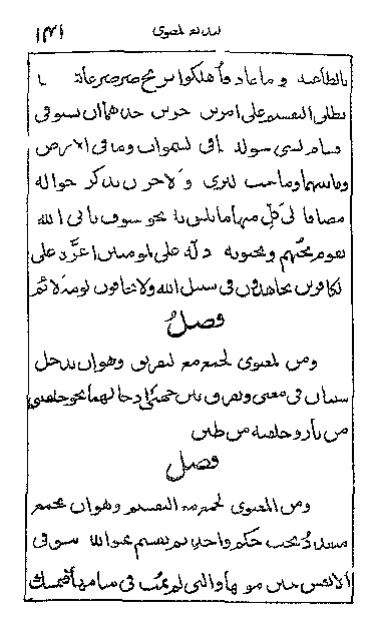 المعنوي
بالطاغية وما عاد فأهلكوا بريح صرصر عاتية
يطلق التقسيم على امرين اخرين احدهما ان يستوفي
اقسام الشيء كقوله له ما في السموات وما في الارض
وما بينهما وما تحت الثرى والاخر ان يذكر احواله
مضافا الى كل منها ما يليق به نحو فسوف يأتي الله
بقوم يحبهم ويحبونه اذلة على المومنين اعزة على
الكافرين يجاهدون في سبيل الله ولا يخافون لومة لائم
فصل
ومن المعنوي الجمع مع التفريق وهو ان يدخل
شيئان في معنى ويفرق بين جهتي ادخالهما نحو خلقتني
من نار وخلقته من طين
فصل
ومن المعنوي الجمع مع التقسيم وهو ان يجمع
متعدد تحت حكم واحد ثم يقسم نحو الله يتوفى
الانفس حين موتها والتي لم تمت في منامها فيمسك